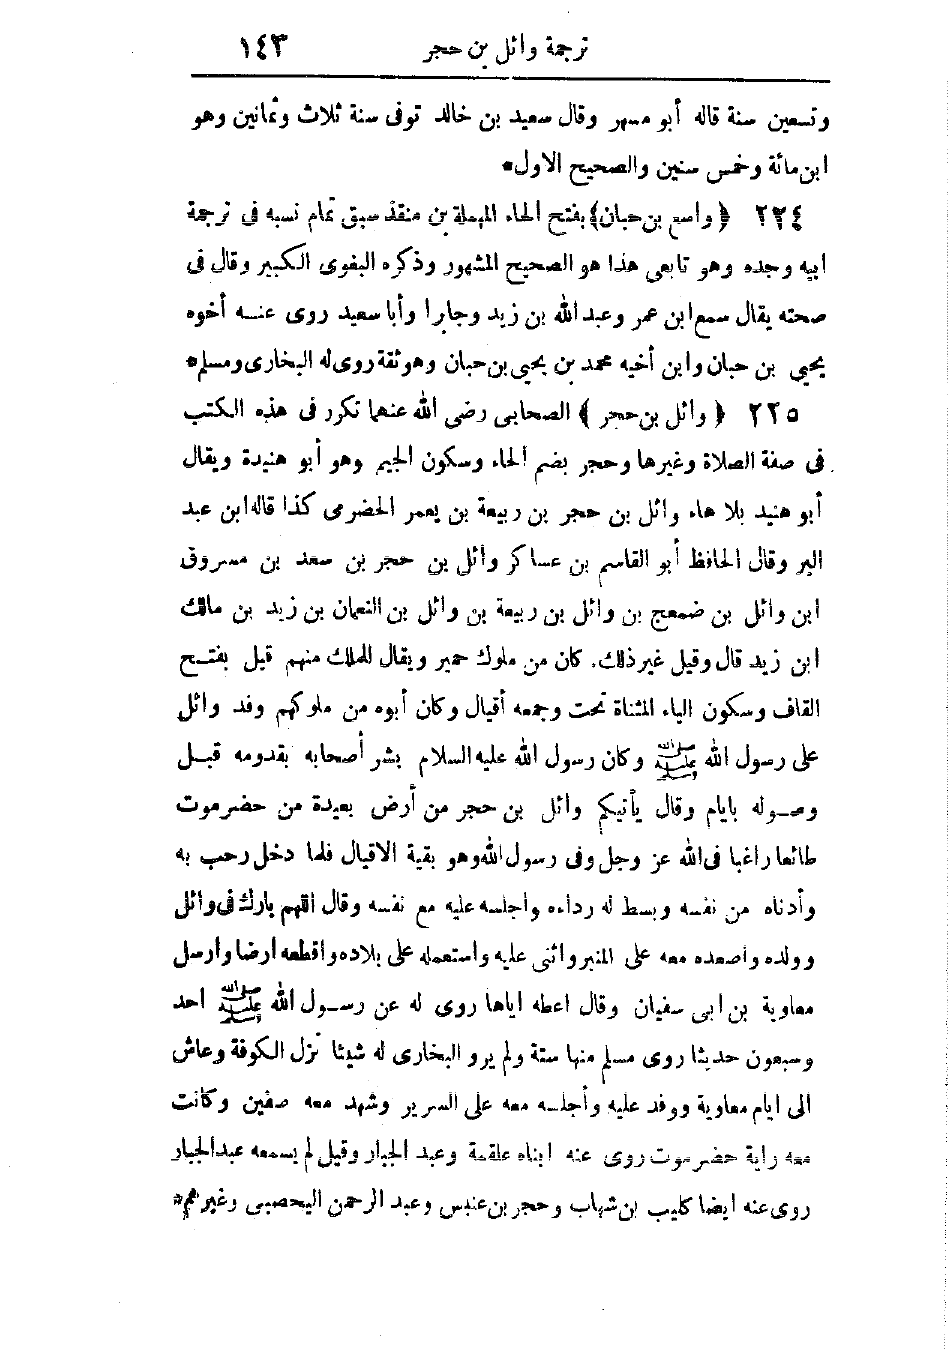 ترجمة وائل بن حجر ١٤٣
وتسعين سنة قاله أبو مسهر وقال سعيد بن خالد توفى سنة ثلاث وثمانين وهو
ابن مائة وخمس سنين والصحيح الاول*
٢٢٤ ﴿واسع بن حبان﴾ بفتح الحاء المهملة بن منقذ سبق تمام نسبه فى ترجمة
ابيه وجده وهو تابعى هذا هو الصحيح المشهور وذكره البغوى الكبير وقال فى
صحته يقال سمع ابن عمر وعبد الله بن زيد وجابرا وأبا سعيد روى عنه أخوه
يحيى بن حبان وابن أخيه محمد بن يحيى بن حبان وهو ثقة روى له البخارى ومسلم*
٢٢٥ ﴿وائل بن حجر﴾ الصحابى رضى الله عنهما تكرر فى هذه الكتب
فى صفة الصلاة وغيرها وحجر بضم الحاء وسكون الجيم وهو أبو هنيدة ويقال
أبو هنيد بلا هاء وائل بن حجر بن ربيعة بن يعمر الحضرمى كذا قاله ابن عبد
البر وقال الحافظ أبو القاسم بن عساكر وائل بن حجر بن سعد بن مسروق
ابن وائل بن ضمعج بن وائل بن ربيعة بن وائل بن النعمان بن زيد بن مالك
ابن زيد قال وقيل غير ذلك. كان من ملوك حمير ويقال للملك منهم قيل بفتح
القاف وسكون الياء المثناة تحت وجمعه أقيال وكان أبوه من ملوكهم وفد وائل
على رسول الله ﷺ وكان رسول الله عليه السلام بشر أصحابه بقدومه قبل
وصوله بايام وقال يأتيكم وائل بن حجر من أرض بعيدة من حضرموت
طائعا راغبا فى الله عز وجل وفى رسول الله وهو بقية الاقيال فلما دخل رحب به
وأدناه من نفسه وبسط له رداءه واجلسه عليه مع نفسه وقال اللهم بارك فى وائل
وولده واصعده معه على المنبر واثنى عليه واستعمله على بلاده واقطعه ارضا وارسل
معاوية بن ابى سفيان وقال اعطه اياها روى له عن رسول الله ﷺ احد
وسبعون حديثا روى مسلم منها ستة ولم يرو البخارى له شيئا نزل الكوفة وعاش
الى ايام معاوية ووفد عليه وأجلسه معه على السرير وشهد معه صفين وكانت
معه راية حضرموت روى عنه ابناه علقمة وعبد الجبار وقيل لم يسمعه عبدالجبار
روى عنه ايضا كليب بن شهاب وحجر بن عنبس وعبد الرحمن اليحصبى وغيرهم*